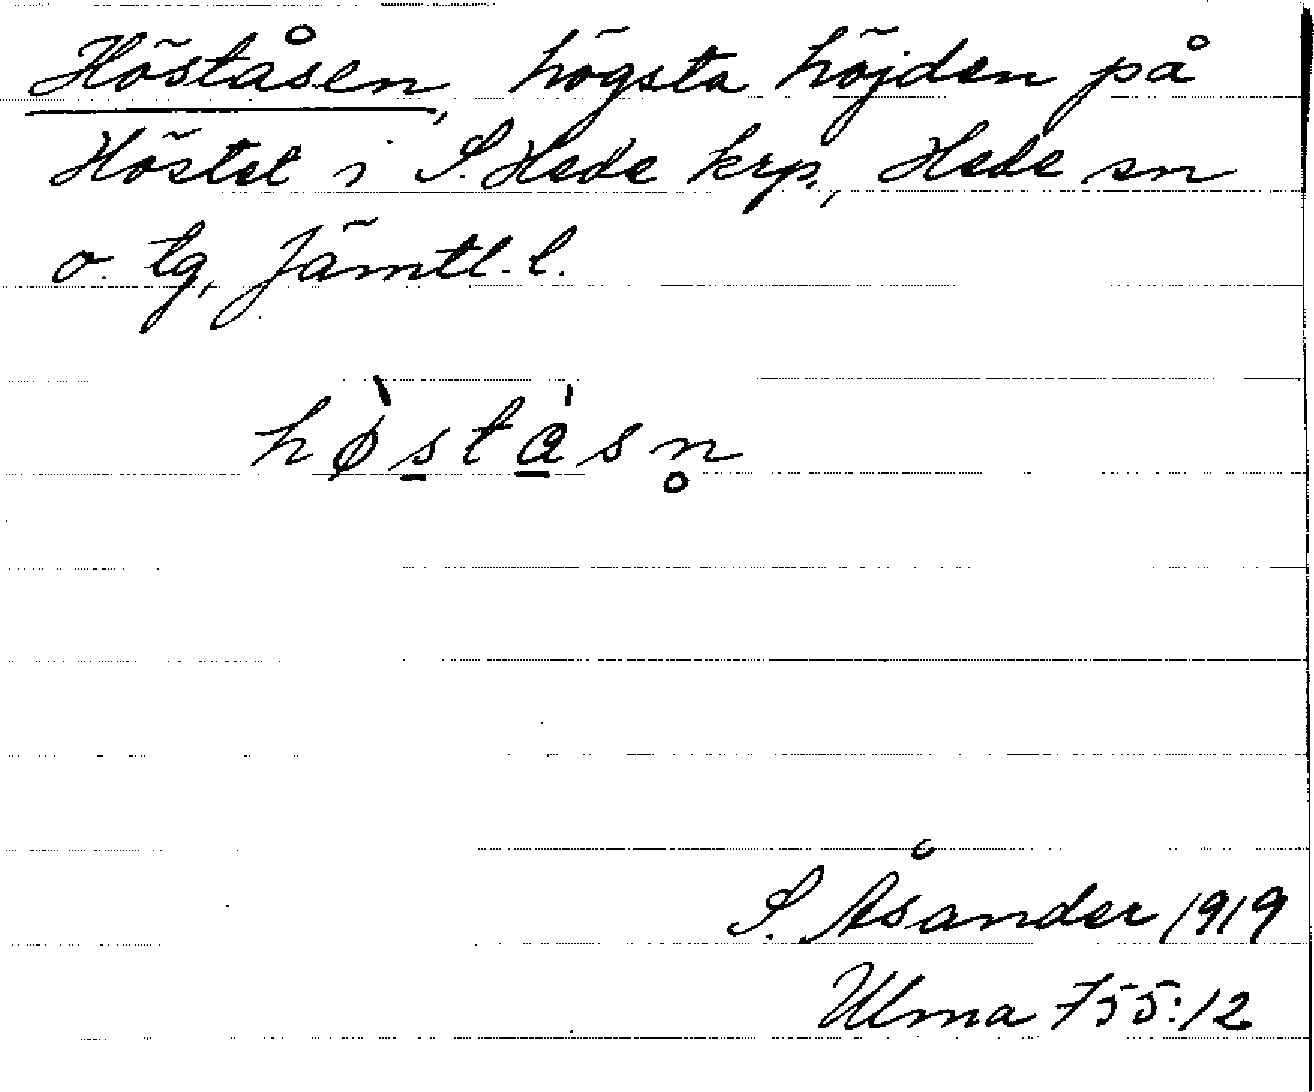 Höståsen, högsta höjden på
Höstet i S. Hede krp., Hede sn
o. tg, Jämtl. l.
hø̀stа̀sn̥
S. Åsander 1919
Ulma 755:12